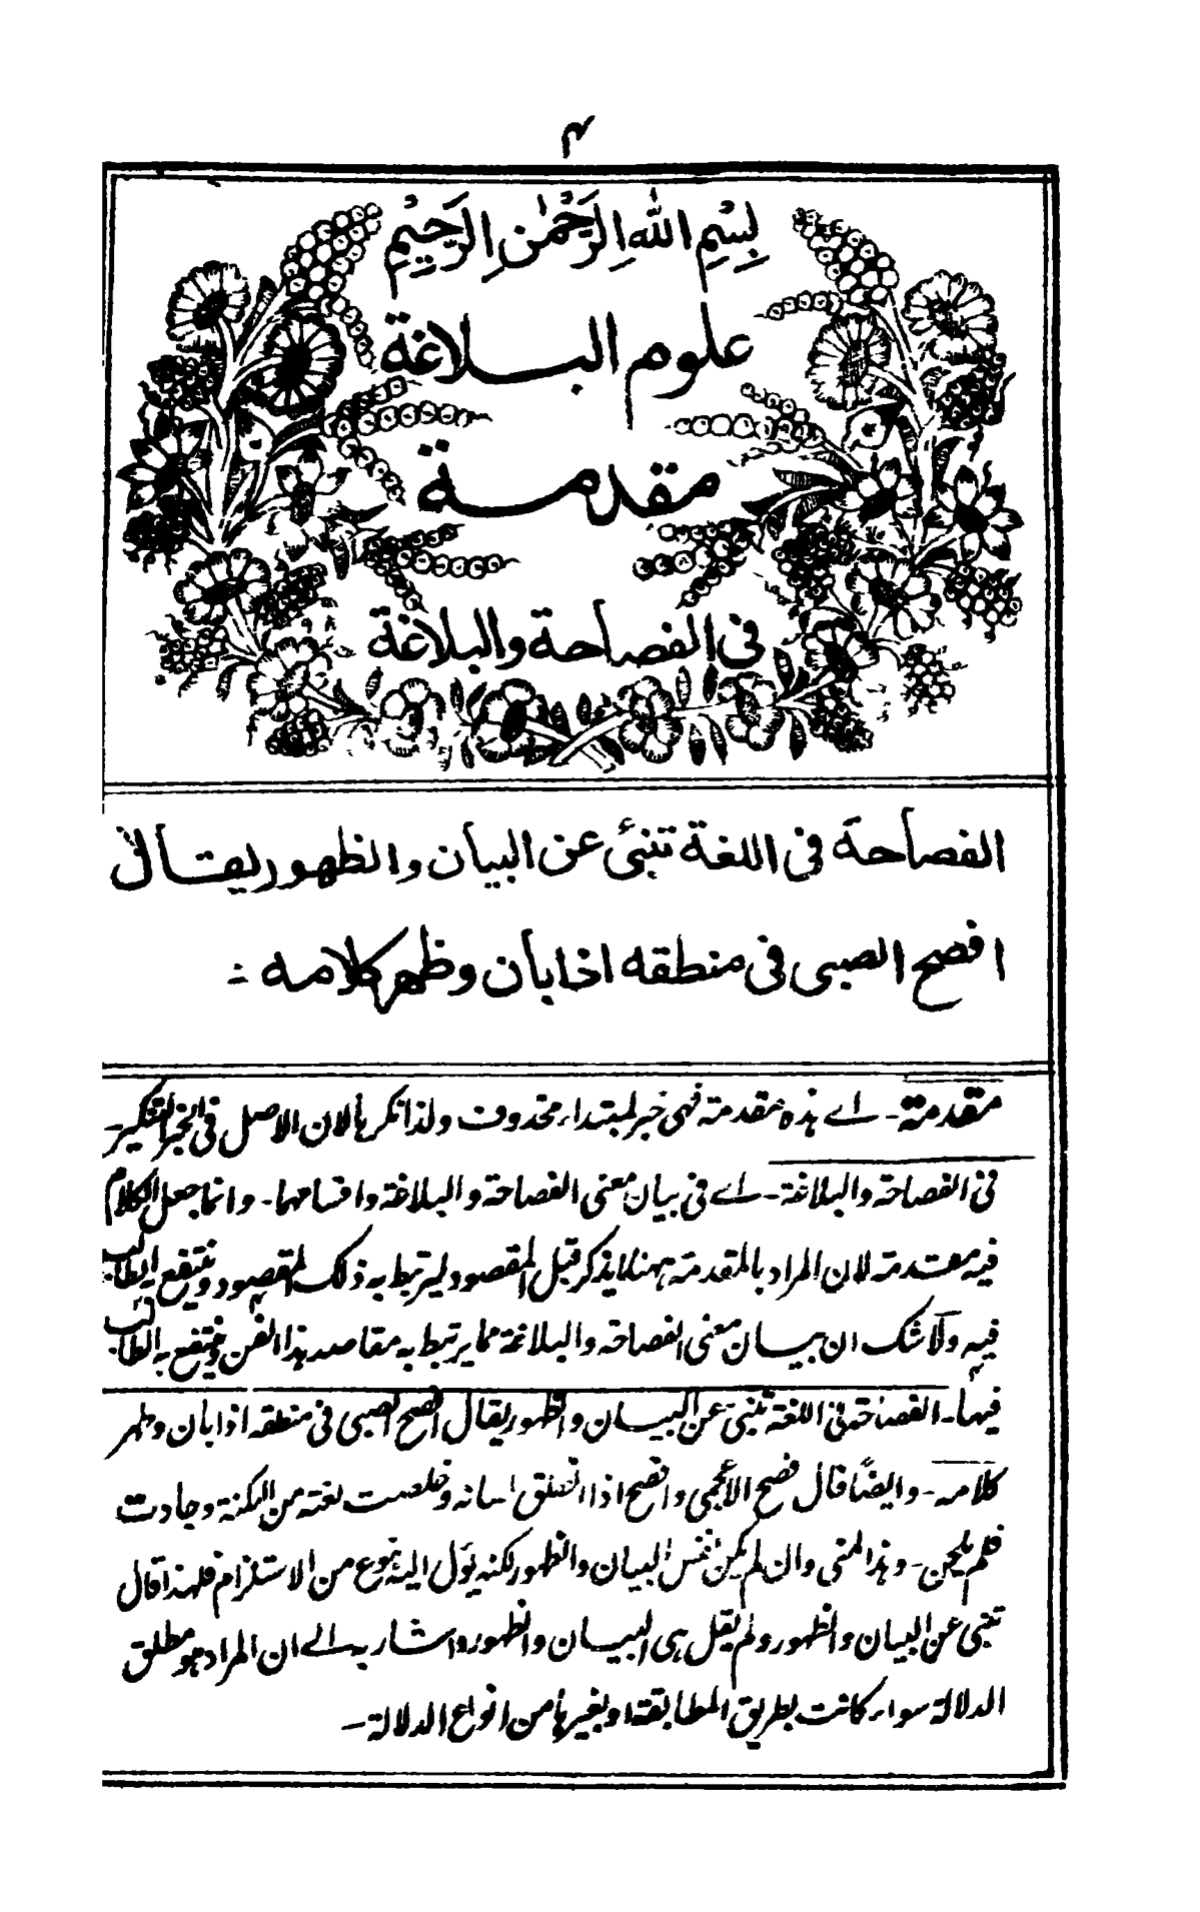 ۴
بِسْمِ اللهِ الرَّحْمٰنِ الرَّحِيْمِ
علوم البلاغة
مقدمة
فى الفصاحة والبلاغة
الفصاحة فى اللغة تنبئ عن البيان والظهور يقال
افصح الصبى فى منطقه اذا بأن وظهر كلامه :
مقدمة - اے هذه مقدمة فهى خبر لمبتداء محذوف ولذا نكرها لان الاصل فى الخبر التنكير -
فى الفصاحة والبلاغة - اے فى بيان معنى الفصاحة والبلاغة واقسامهما - وانما جعل الكلام
فيه مقدمة لان المراد بالمقدمة ههنا ما يذكر قبل المقصود ليرتبط به ذلك المقصود وينتفع الطالب
فيه ولا شك ان بيان معنى الفصاحة والبلاغة مما يرتبط به مقاصد هذا الفن وينتفع به الطالب
فيها - الفصاحة فى اللغة تنبئ عن البيان والظهور يقال افصح الصبى فى منطقه اذا بأن وظهر
كلامه - وايضًا قال فصح الأعجمى وافصح اذا انطلق لسانه وخلصت لغته من اللكنة وجادت
فلم يلحن - وهذا المعنى وان لم يكن نفس البيان والظهور لكنه يؤل اليه بنوع من الاستلزام فلهذا قال
تنبئ عن البيان والظهور ولم يقل هى البيان والظهور واشار به الے ان المراد هو مطلق
الدلالة سواء كانت بطريق المطابقة او بغيرها من انواع الدلالة -